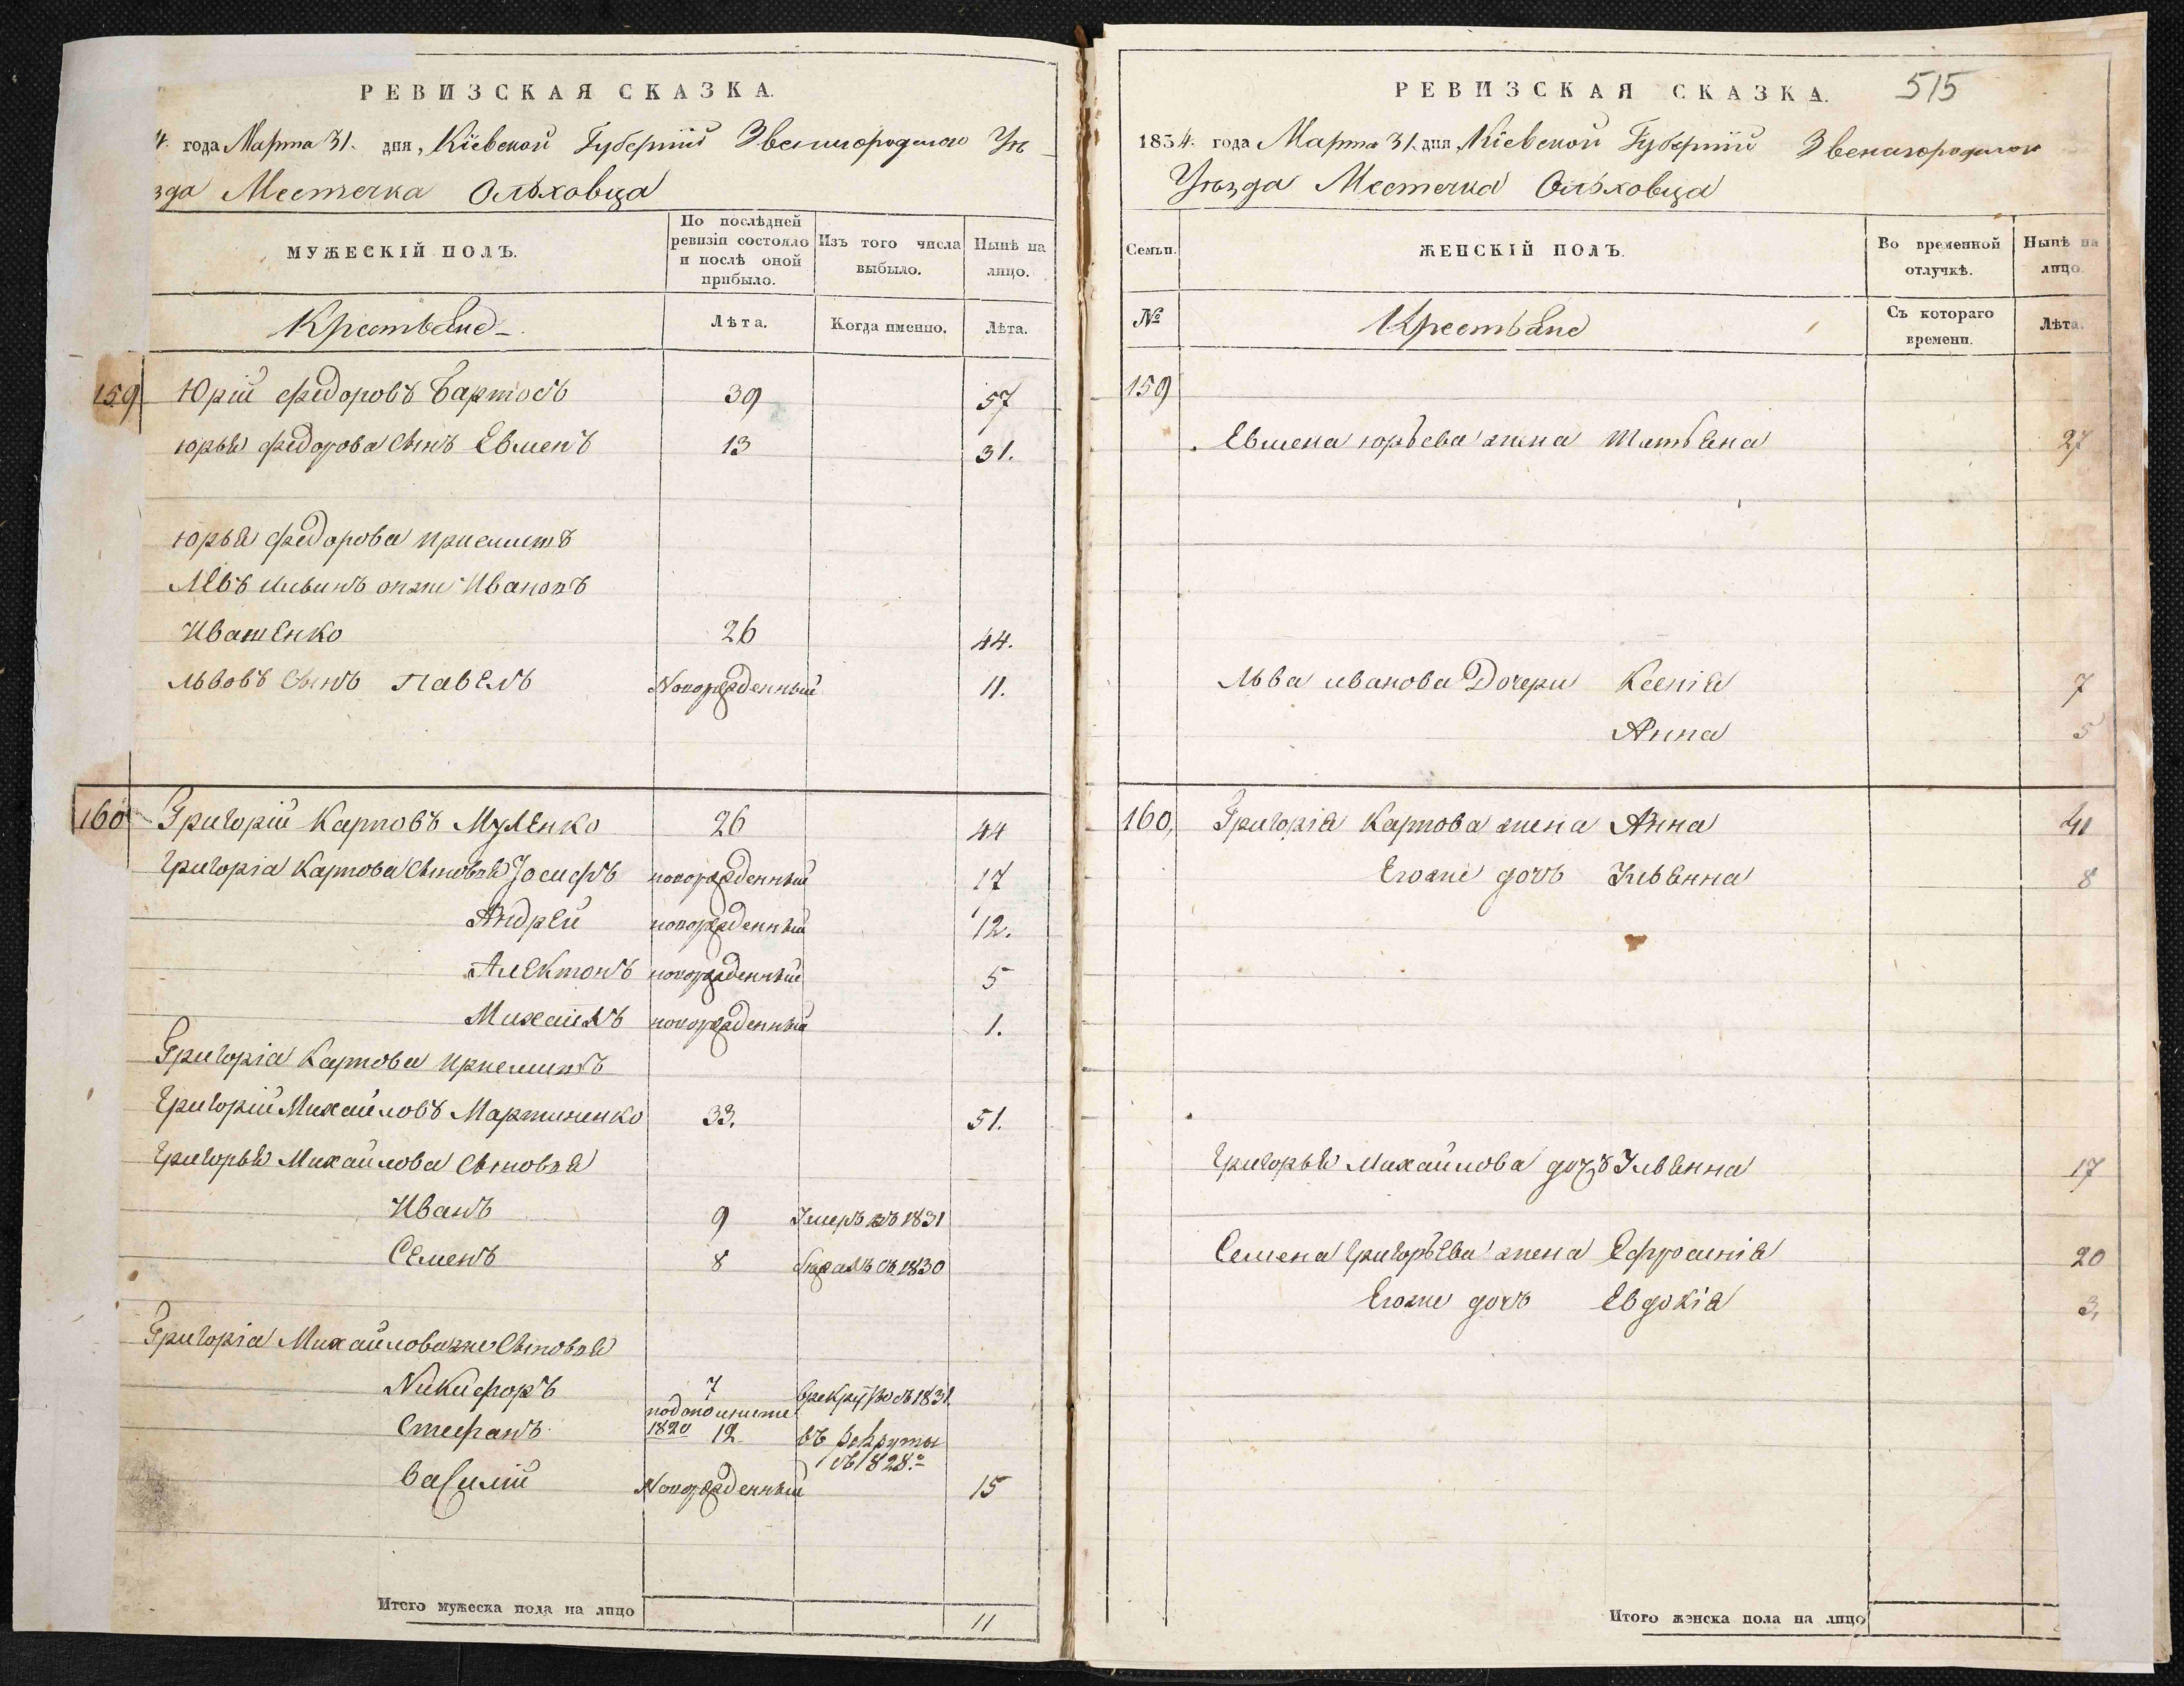 РЕВИЗСКАЯ СКАЗКА.
4. года Марта 31. дня, Кіевской Губерніи Звенигородского Уѣ-
зда Местечка Ольховца
МУЖЕСКІЙ ПОЛЪ.
По послѣдней ревизіи состояло и послѣ оной прибыло.
Изъ того числа выбыло.
Нынѣ на лицо.
Крестьяне
Лѣта.
Когда именно.
Лѣта.
159 Юрій Федоровъ Бартошъ 39 57
Юрья Федорова Сынъ Евменъ 13 31.
Юрья Федорова приемышъ
Левъ Ивановъ
Иващенко 26 44.
Львовъ Сынъ Павелъ Новорожденный 11.
160 Григорій Карповъ Муленко 26 44
Григорія Карпова Сыновья Іосифъ новорожденный 17
Андрей новорожденный 12.
новорожденный 5
Михаилъ новорожденный 1.
Григорія Карпова приемышъ
Григорій Михайловъ Мартиненко 33. 51.
Григорья Михайлова Сыновья
Иванъ 9 Умеръ въ 1831
Семенъ 8 въ 1830
Григорія Михайлова же Сыновья
Никифоръ 7 въ 1831.
Стефанъ 1820 12 въ рекруты въ 1828.
Василій Новорожденный 15
Итого мужеска пола на лицо 11
РЕВИЗСКАЯ СКАЗКА. 515
1854. года Марта 31. дня Кіевской Губерніи Звенигородского
Уѣзда Местечка Ольховца
Семьи.
ЖЕНСКІЙ ПОЛЪ.
Во временной отлучкѣ.
Нынѣ на лицо.
№
Крестьяне
Съ котораго времени.
Лѣта.
159
Евмена Юрьева жена Татьяна 27
Льва Иванова Дочери Ксенія 7
Анна 5
160, Григорія Карпова жена Анна 41
Егоже дочь Ульянна 8
Григорья Михайлова дочь Ульянна 17
Семена Григорьева жена Ефросинія 20
Егоже дочь Евдокія 3,
Итого женска пола на лицо